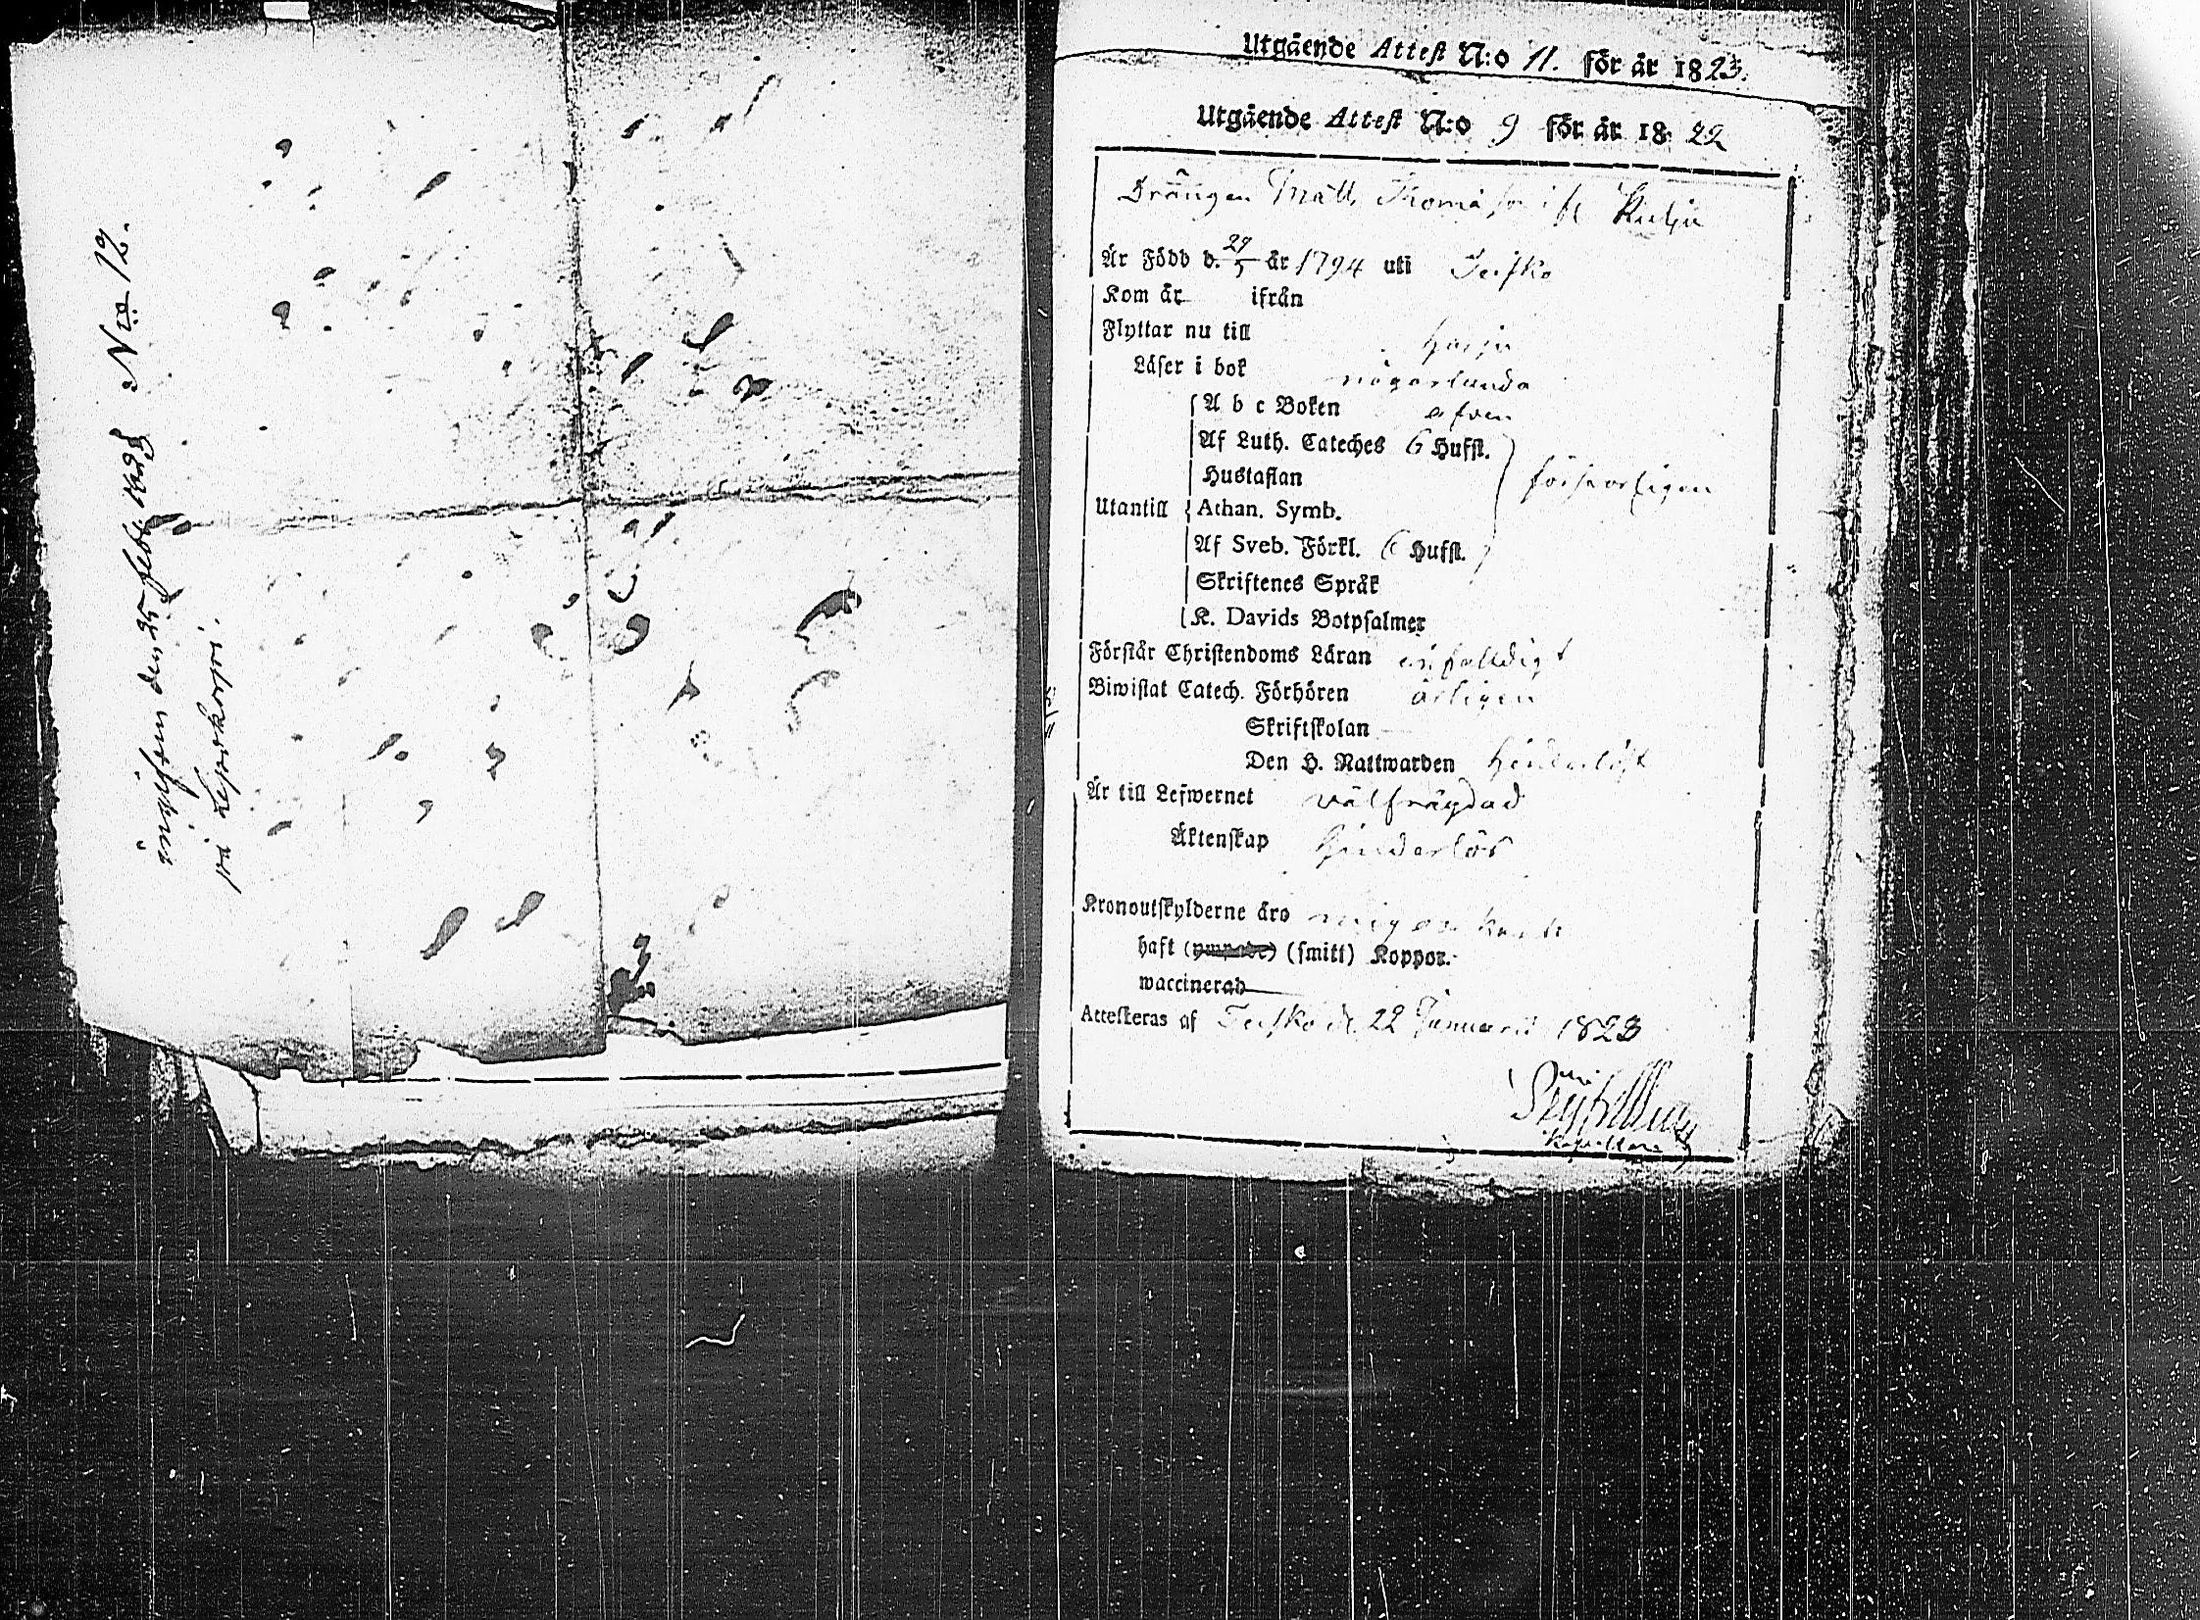 N:ro 12.
den 25 febr. 1823
på
Utgående Attest N:o 11. för år 1823.
Utgående Attest N:o 9 för år 18 22
Drängen Matts Thomasson
Är Född d. 29/5 år 1794 uti Teisko
Kom år ifrån
Flyttar nu till Harju
Läser i bok någorlunda
A b c Boken äfven
Af Luth. Cateches 6 Hufst.
Hustaflan försvarligen
Utantill Athan. Symb.
Af Sveb. Förkl. 6 Hufst.
Skriftenes Språk
K. Davids Botpsalmer
Förstår Christendoms Läran enfalldigt
Biwistat Catech. Förhören årligen
Skriftskolan
Den H. Nattwarden
Är till Lefwernet välfrägdad
Äktenskap hinderlös
Kronoutskylderne äro
haft (ympade) (smitt) Koppor.
waccinerad
Attesteras af Teisko d. 22 Januarii 1823